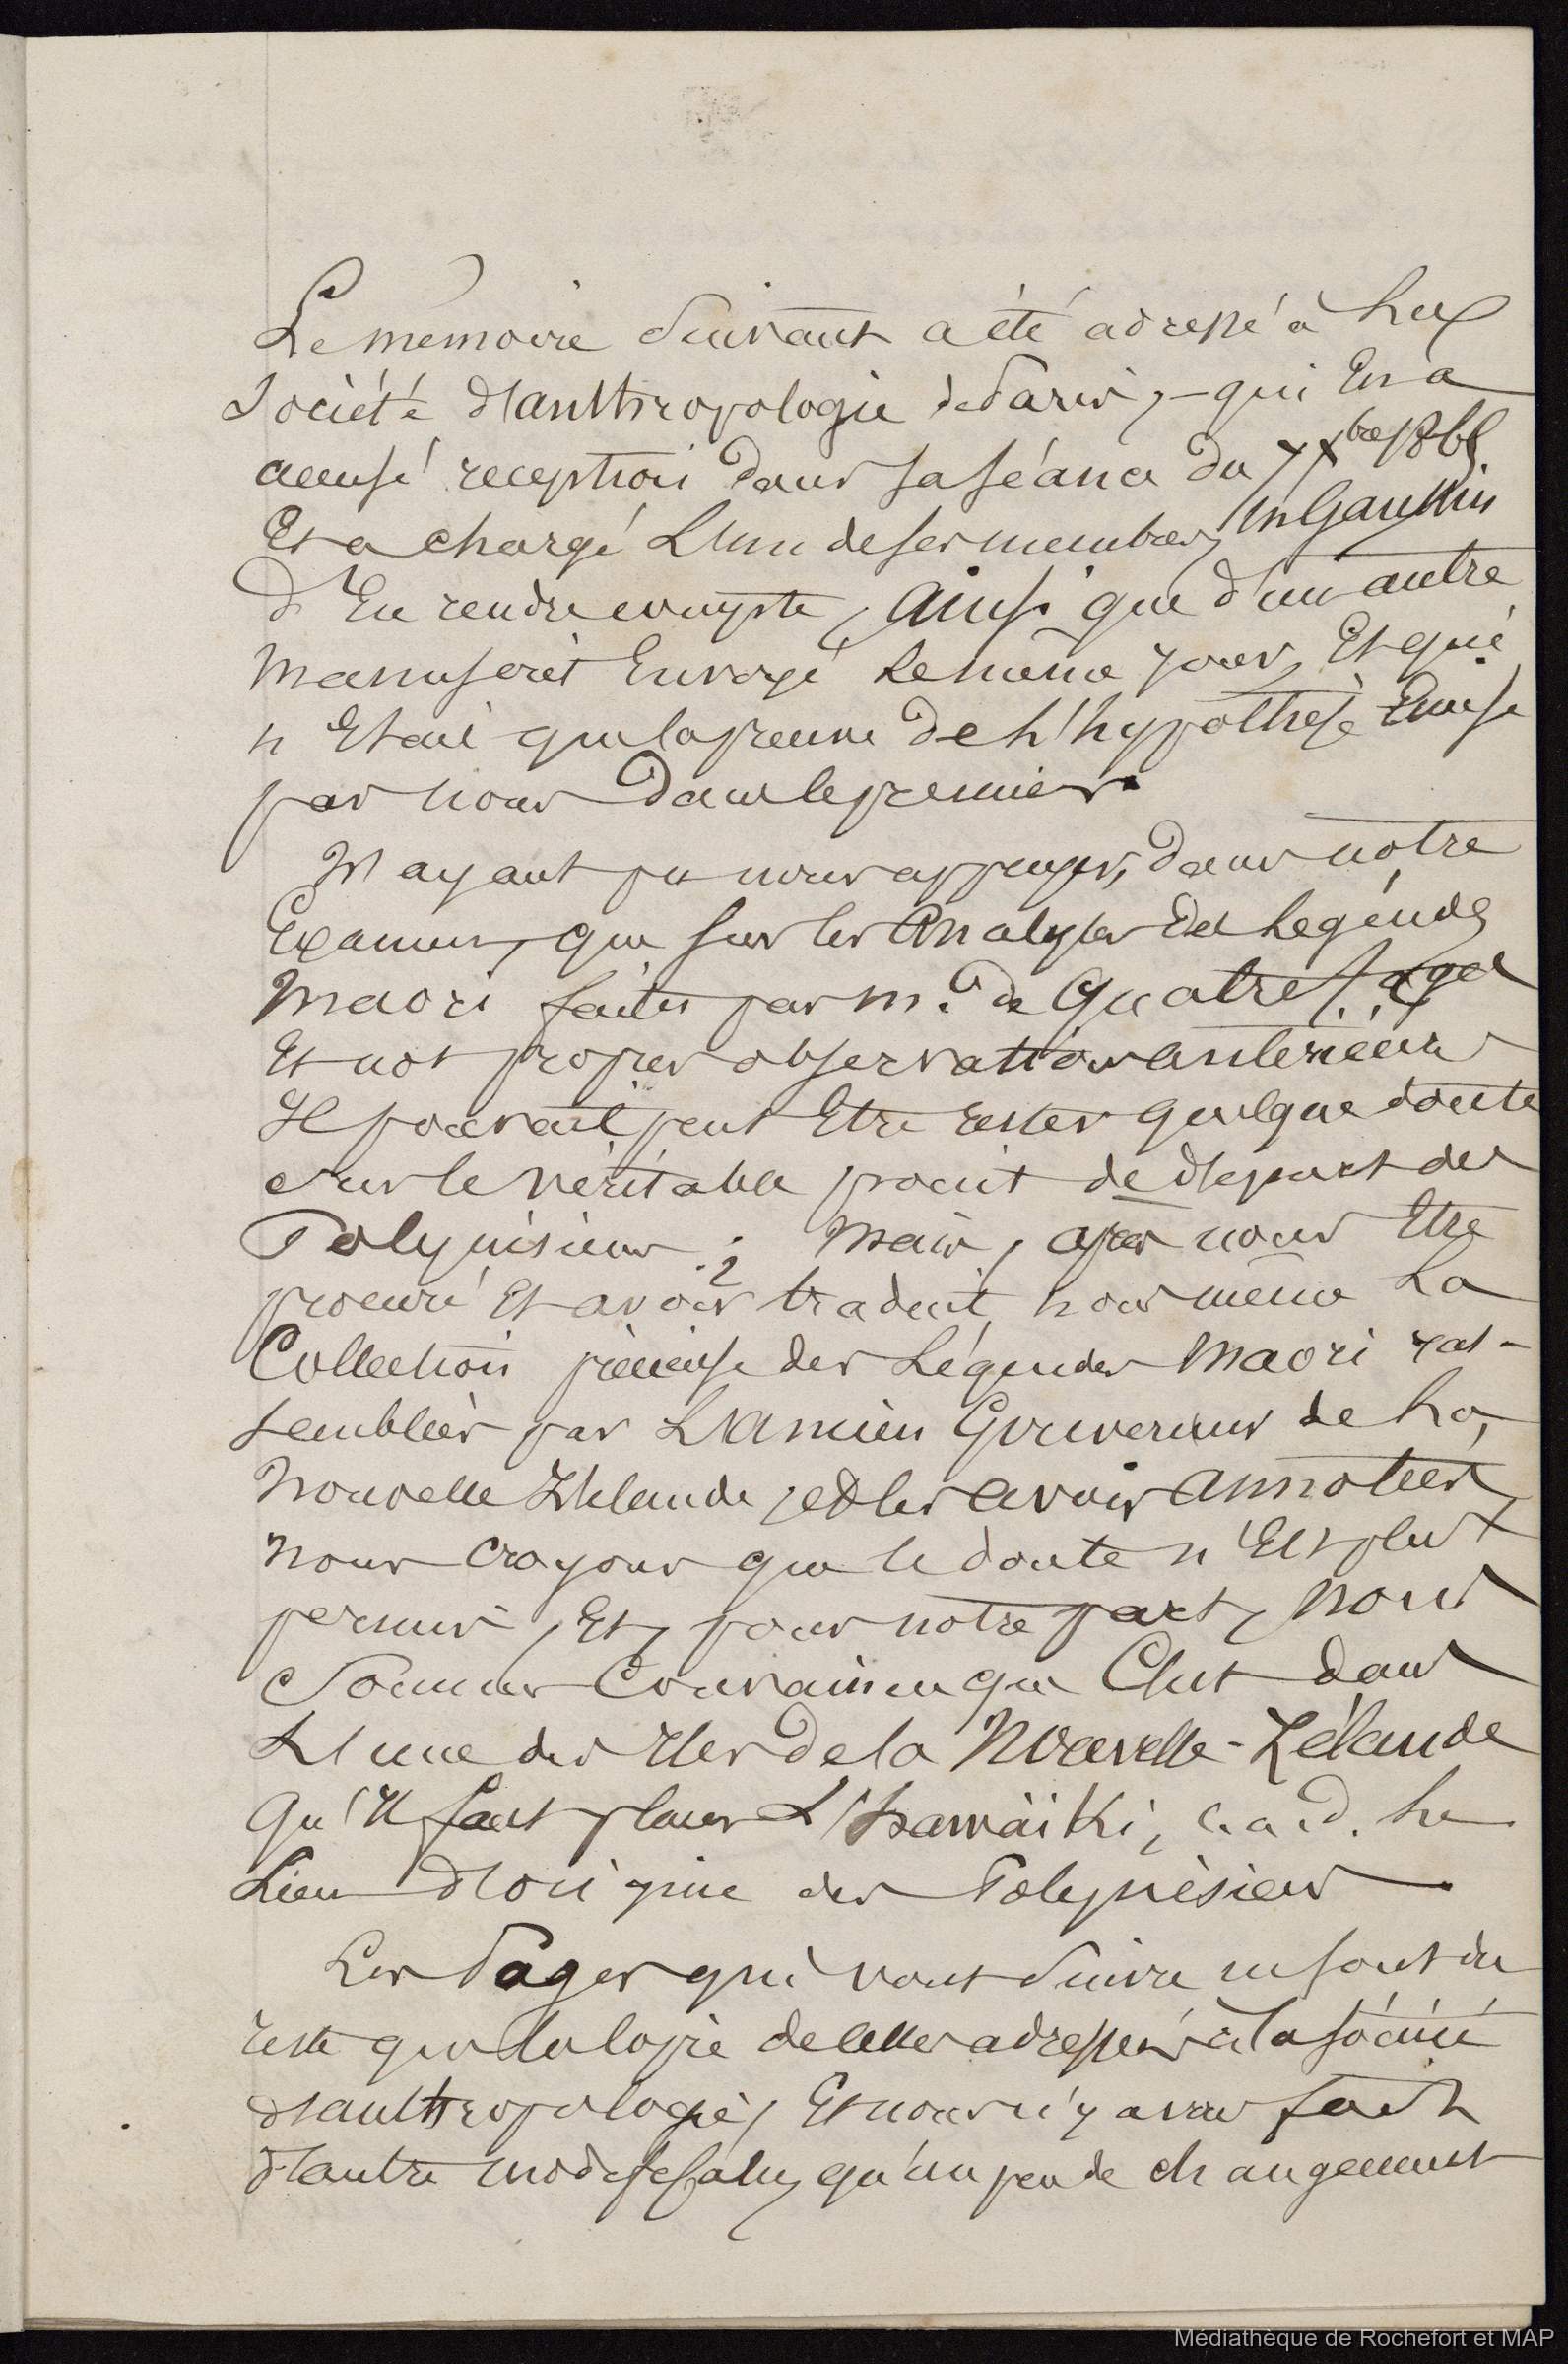 Le mémoire suivant a été adressé à la
Société d'anthropologie de Paris, - qui en a
accusé reception dans sa séance du 7 Xbre 186
Et a chargé L'un de ses membres, Mr Gaussin
d'En rendre compte, Ainsi que d'un autre
Manuscrit Envoyé Le même jour, Et qui
n'Etait que la preuve de L'hypothèse Emise
par nous Dans le premier.
N'ayant pu nous appuyer, dans notre
Examen, que sur les Analyses Des Légendes
Maori faites par Mr. De Quatrefages
Et nos propres observations antérieures
Il pouvait peut Etre rester quelque doute
sur le véritable point de départ des
Polynésiens ; Mais, après nous Etre
procuré Et avoir traduit nous même La
Collection précieuse des Légendes Maori ras-
semblées par L'Ancien Gouverneur de La
Nouvelle Zélande, et les avoir annotées,
nous croyons que le doute n'Est plus
permis, Et, pour notre part, nous
Sommes Convaincu que C'est dans
L'une des Iles de la Nouvelle-Zélande
Qu'Il faut placer L'Hawaïki, c.a.d. Le
Lieu d'origine des Polynésiens
Les Pages qui vont suivre ne sont du
reste que la copie de celles adressées à la société
d'anthropologie, Et nous n'y avons fait
d'autre modification, qu'un peu de changement
Médiathèque de Rochefort et MAP